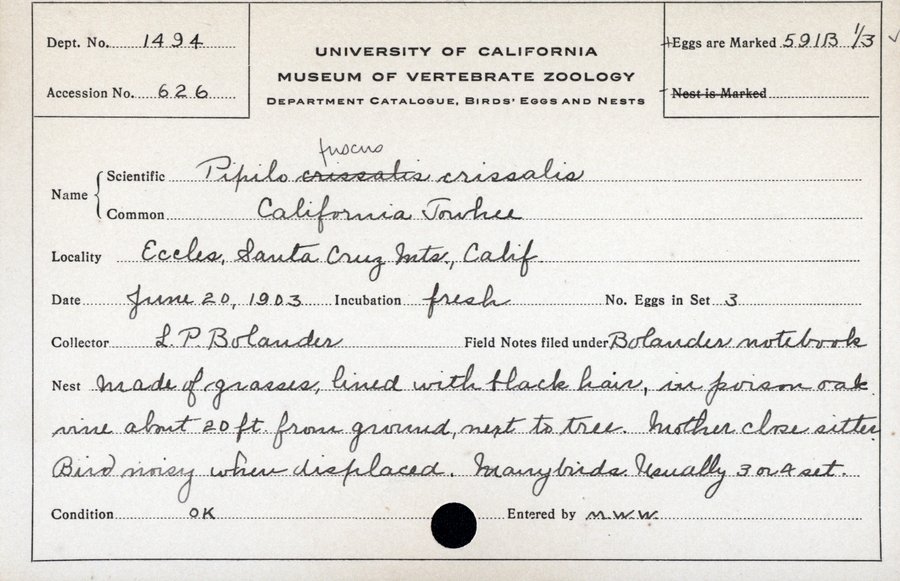 Dept. No. 1494
Accession No. 626
UNIVERSITY OF CALIFORNIA
MUSEUM OF VERTEBRATE ZOOLOGY
DEPARTMENT CATALOGUE, BIRDS' EGGS AND NESTS
Eggs are Marked 591B 1/3 ✓
Nest is Marked
fuscus
Name { Scientific Pipilo crissalis crissalis
Common California Towhee
Locality Eccles, Santa Cruz Mts., Calif.
Date June 20, 1903 Incubation fresh No. Eggs in Set 3
Collector L. P. Bolander Field Notes filed under Bolander notebook
Nest Made of grasses, lined with black hair, in poison oak
vine about 20 ft. from ground, next to tree. Mother close sitter.
Bird noisy when displaced. Many birds. Usually 3 or 4 set.
Condition OK Entered by M.W.W.